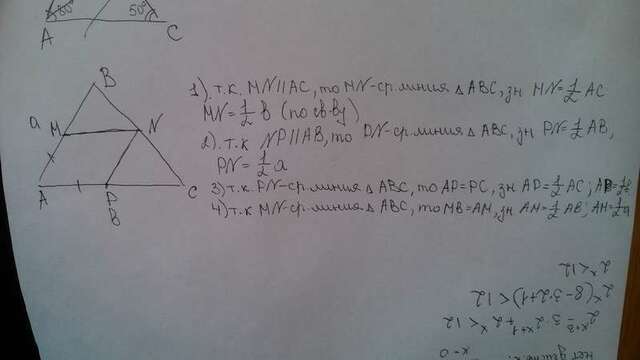 80° 50°
A C
B
a M N
A P C
B
1). т.к. MN||AC, то MN-ср. линия ∆ ABC, зн MN=1/2 AC
MN=1/2 в (по св-ву)
2). т.к NP||AB, то PN-ср. линия ∆ ABC, зн PN=1/2 AB,
PN=1/2 a
3) т.к. PN-ср. линия ∆ ABC, то AP=PC, зн AP=1/2 AC; AP=1/2в
4) т.к MN-ср. линия ∆ ABC, то MB=AM, зн AM=1/2 AB; AM=1/2a
x-0
2^(x+3) - 3·2^(x+1) + 2^x < 12
2^x(8-3·2+1)<12
2^x<12